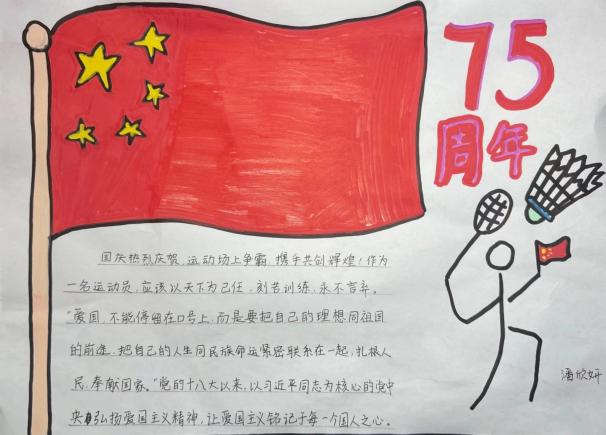 75
周年
国庆热烈庆贺,运动场上争霸,携手共创辉煌!作为
一名运动员,应该以天下为己任,刻苦训练,永不言弃。
"爱国,不能停留在口号上,而是要把自己的理想同祖国
的前途、把自己的人生同民族命运紧密联系在一起,扎根人
民,奉献国家。"党的十八大以来,以习近平同志为核心的党中
央弘扬爱国主义精神,让爱国主义铭记于每一个国人之心。
潘欣妍